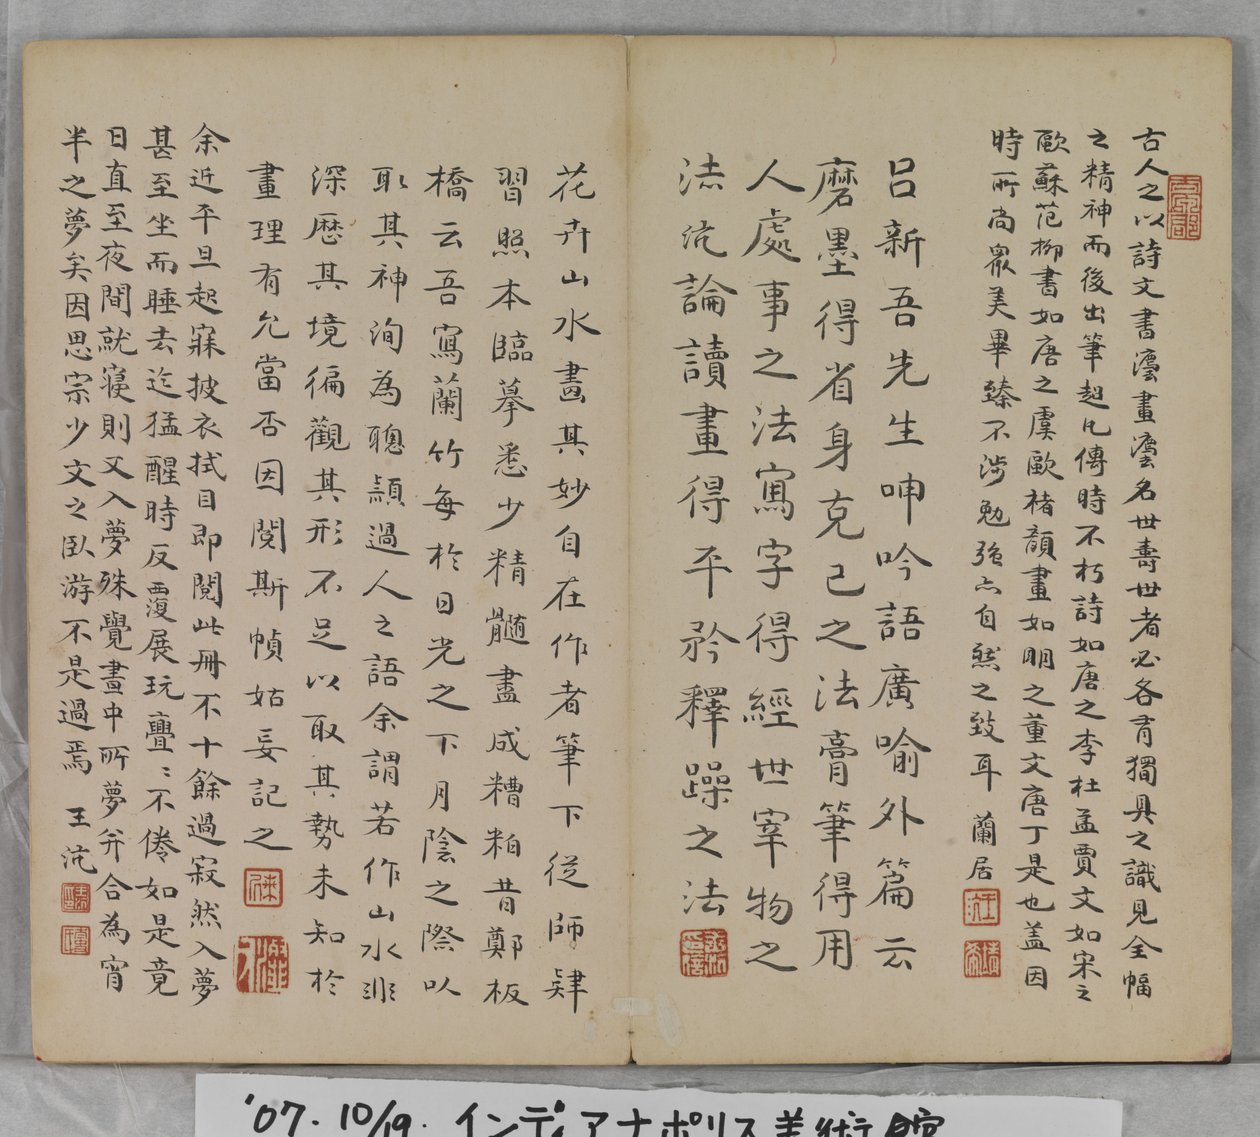 古人之以詩文書灋畫灋名世壽世者必各有獨具之識見全幅
之精神而後出筆超凡傳時不朽詩如唐之李杜孟賈文如宋之
歐蘇范柳書如唐之虞歐褚顏畫如明之董文唐丁是也盖因
時所尚眾美畢臻不涉勉強亦自然之致耳 蘭居
呂新吾先生呻吟語廣喻外篇云
磨墨得省身克己之法膏筆得用
人處事之法寫字得經世宰物之
法沇論讀畫得平矜釋躁之法
花卉山水畫其妙自在作者筆下從師肄
習照本臨摹悉少精髓盡成糟粕昔鄭板
橋云吾寫蘭竹每於日光之下月陰之際以
取其神洵為聰穎過人之語余謂若作山水非
深歷其境徧觀其形不足以取其勢未知於
畫理有允當否因閱斯幀姑妄記之
余近平旦起寐披衣拭目即閱此冊不十餘過寂然入夢
甚至坐而睡去迄猛醒時反覆展玩亹〻不倦如是竟
日直至夜間就寢則又入夢殊覺晝中所夢并合為宵
半之夢矣因思宗少文之臥游不是過焉 王沇
'07.10/19. インディアナポリス美術館